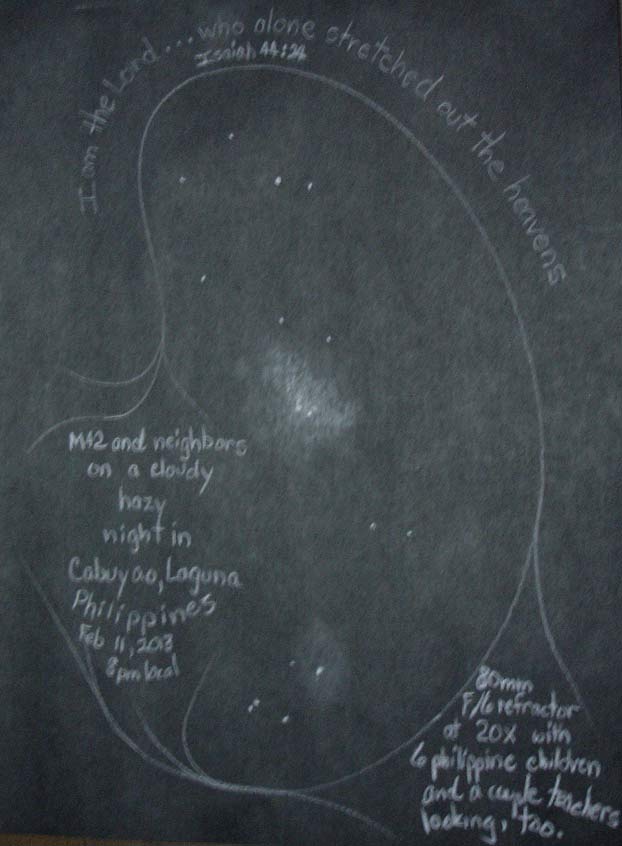 I am the Lord...who alone stretched out the heavens
Isaiah 44:24
M42 and neighbors
on a cloudy
hazy
night in
Cabuyao, Laguna
Philippines
Feb 11, 2013
8pm local
80mm
F/6 refractor
at 20X with
6 philippine children
and a couple teachers
looking, too.